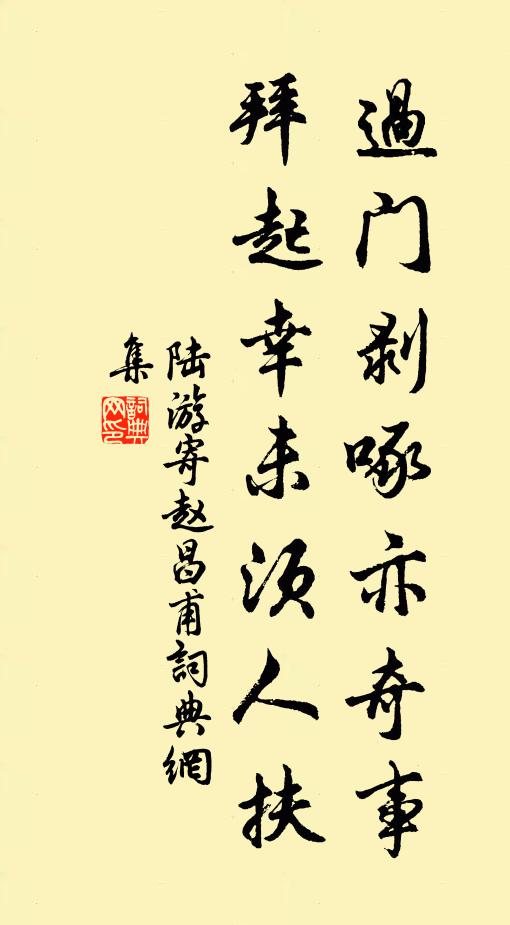 過门剥啄亦奇事
拜起幸未须人扶
陆游寄赵昌甫詞典網
集
詞典
网印